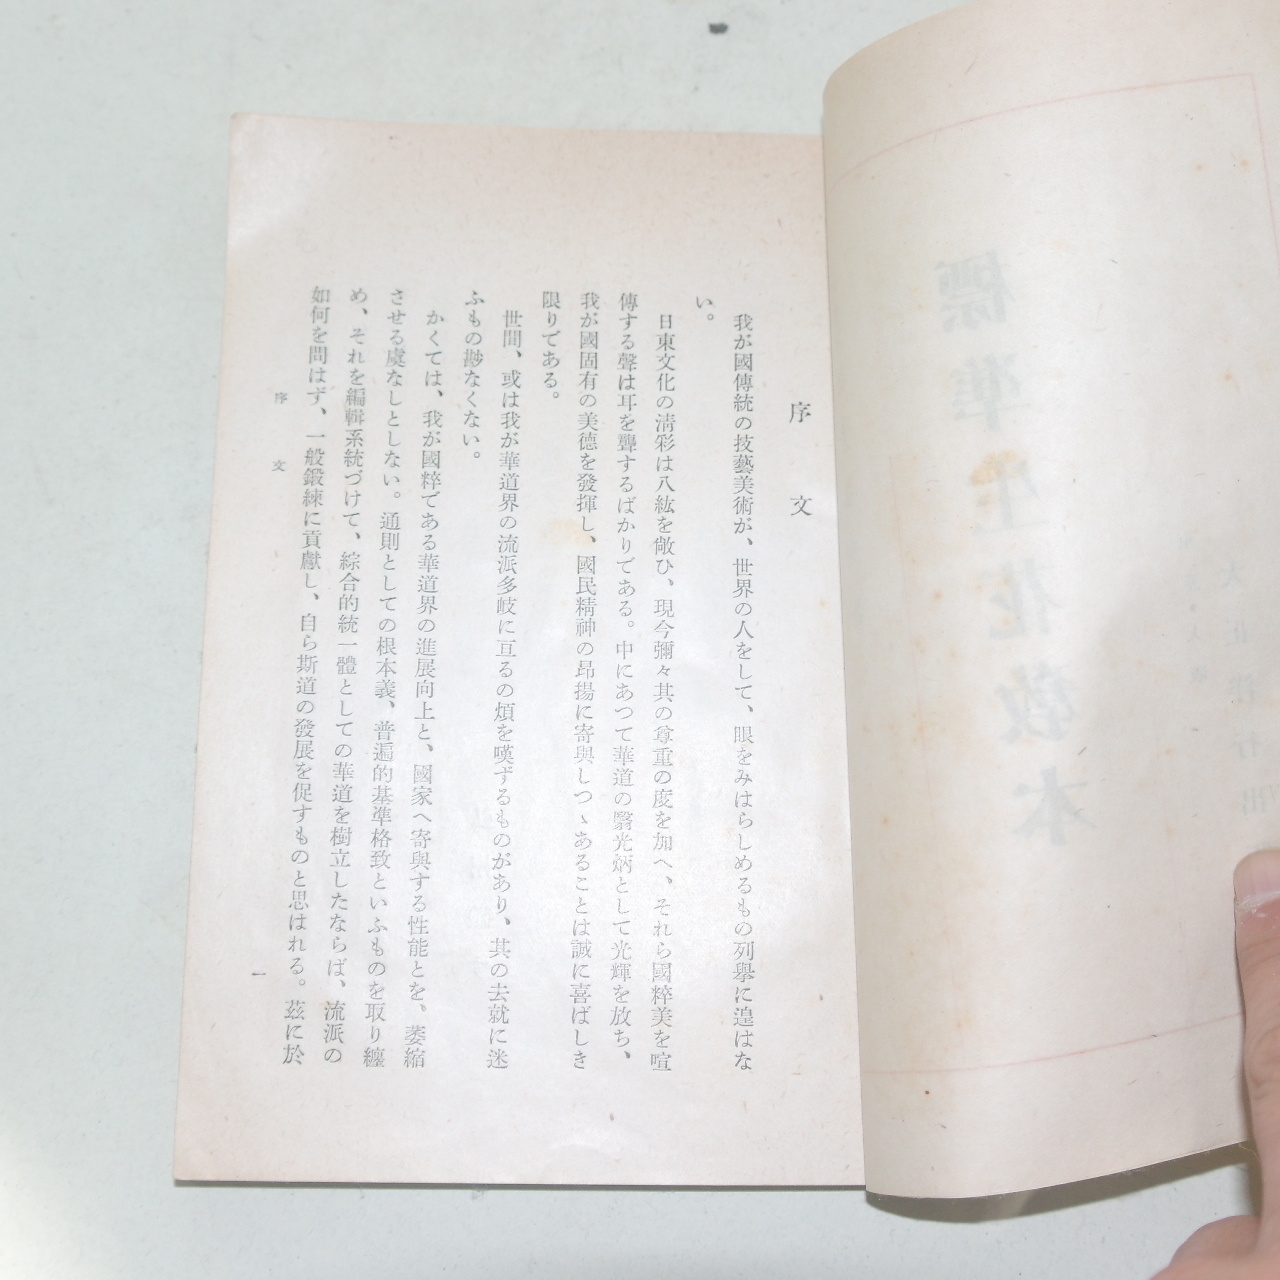 序文
我が國傳統の技藝美術が、世界の人をして、眼をみはらしめるもの列擧に遑はな
い。
日東文化の淸彩は八紘を敵ひ、現今彌々其の尊重の度を加へ、それら國粹美を喧
傳する聲は耳を聾するばかりである。中にあつて華道の翳光炳として光輝を放ち、
我が國固有の美德を發揮し、國民精神の昂揚に寄與しつゝあることは誠に喜ばしき
限りである。
世間、或は我が華道界の流派多岐に亘るの煩を嘆ずるものがあり、其の去就に迷
ふもの尠なくない。
かくては、我が國粹である華道界の進展向上と、國家へ寄與する性能とを、萎縮
させる虞なしとしない。通則としての根本義、普遍的基準格致といふものを取り纏
め、それを編輯系統づけて、綜合的統一體としての華道を樹立したならば、流派の
如何を問はず、一般鍛練に貢獻し、自ら斯道の發展を促すものと思はれる。茲に於
序文
一
標準生花敎本